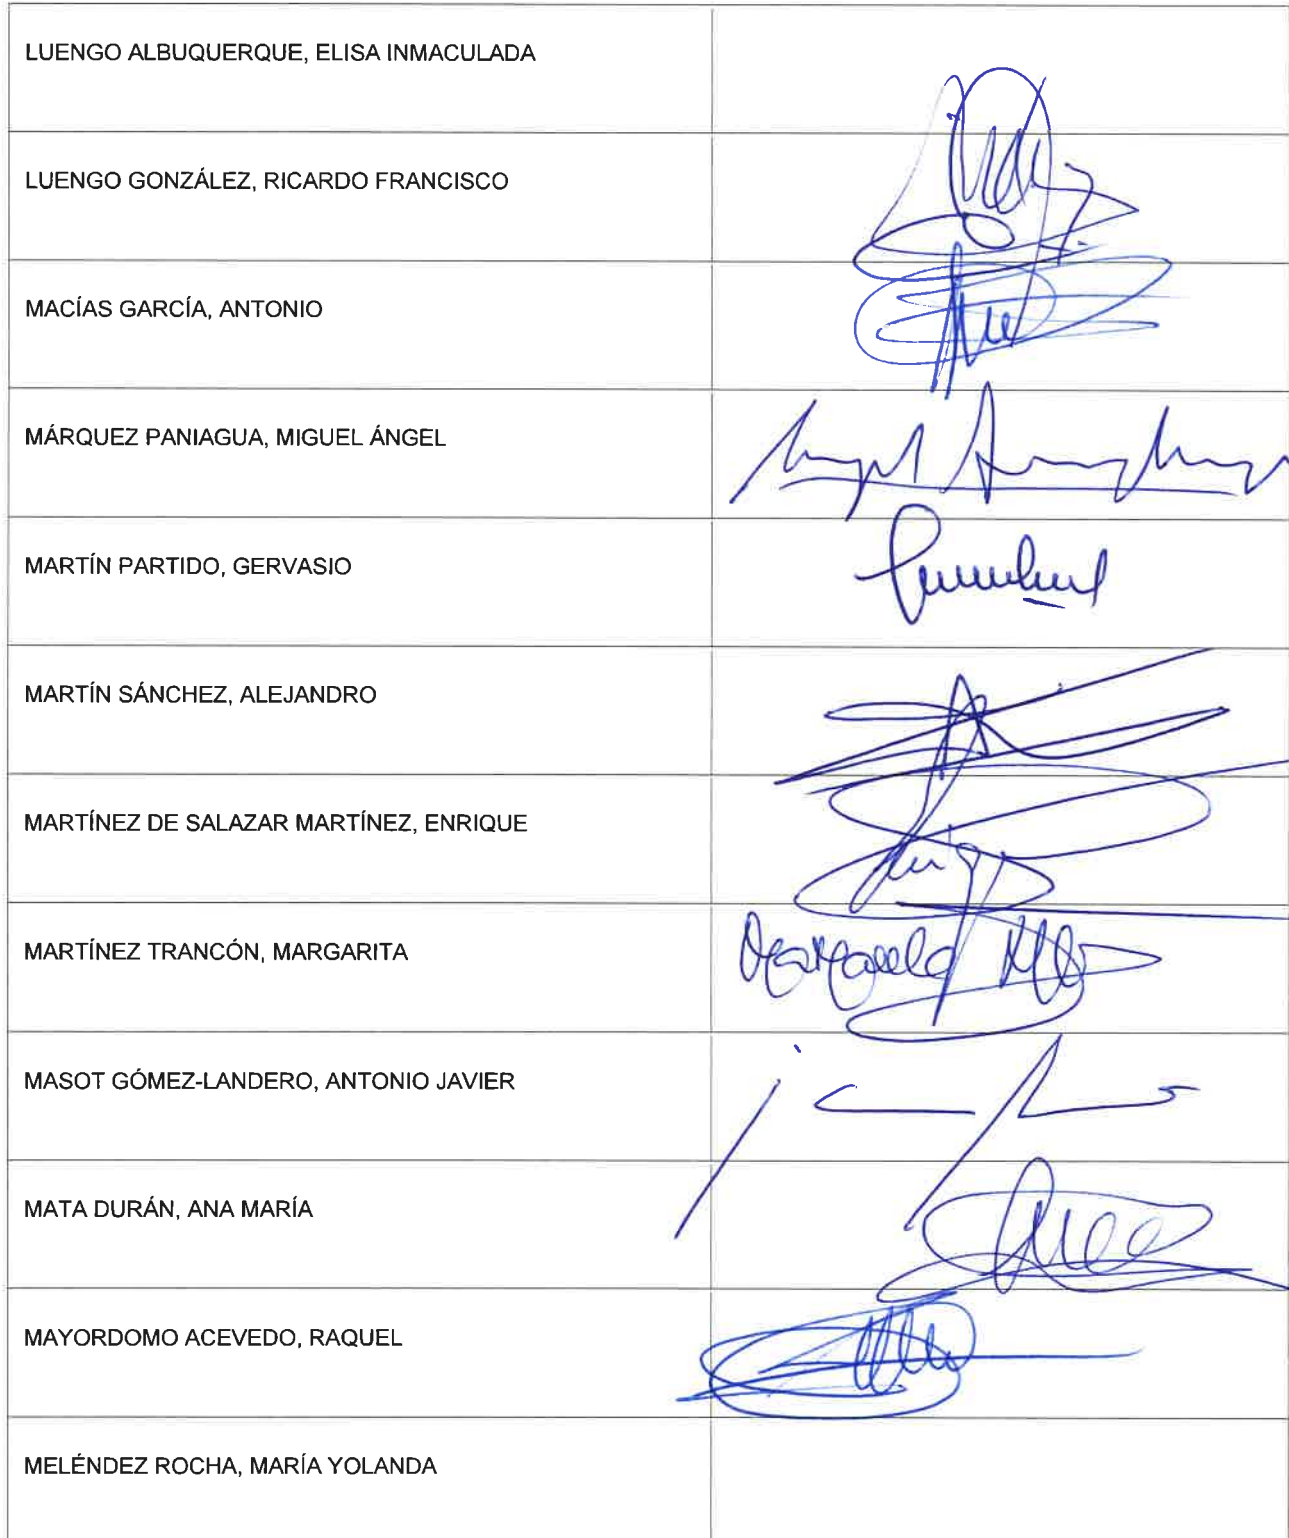 LUENGO ALBUQUERQUE, ELISA INMACULADA
LUENGO GONZÁLEZ, RICARDO FRANCISCO
MACÍAS GARCÍA, ANTONIO
MÁRQUEZ PANIAGUA, MIGUEL ÁNGEL
MARTÍN PARTIDO, GERVASIO
MARTÍN SÁNCHEZ, ALEJANDRO
MARTÍNEZ DE SALAZAR MARTÍNEZ, ENRIQUE
MARTÍNEZ TRANCÓN, MARGARITA
MASOT GÓMEZ-LANDERO, ANTONIO JAVIER
MATA DURÁN, ANA MARÍA
MAYORDOMO ACEVEDO, RAQUEL
MELÉNDEZ ROCHA, MARÍA YOLANDA